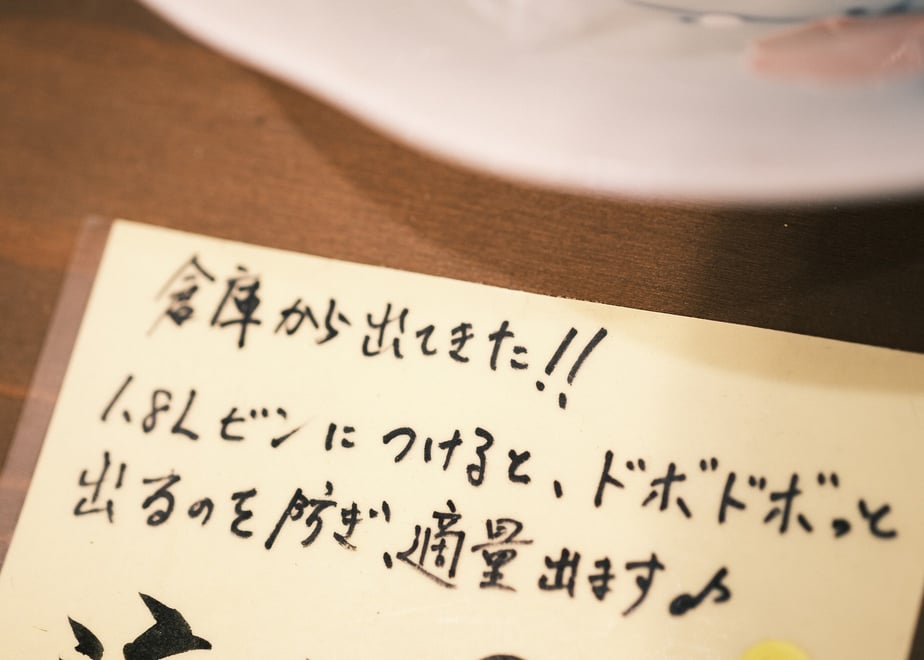 倉庫から出てきた!!
1.8Lビンにつけると、ドボドボっと
出るのを防ぎ、適量出ます♪